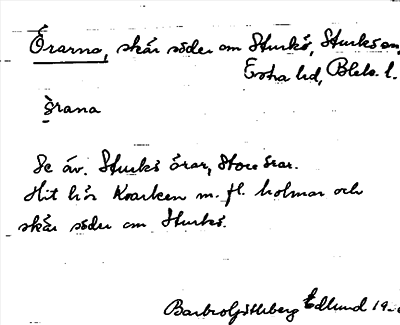 Örarna, skär söder om Sturkö, Sturkö sn,
Östra hd, Blek. l.
örana
Se äv. Sturkö örar, Store örar.
Hit hör Kvarken m. fl. holmar och
skär söder om Sturkö.
Barbro Edlund 19